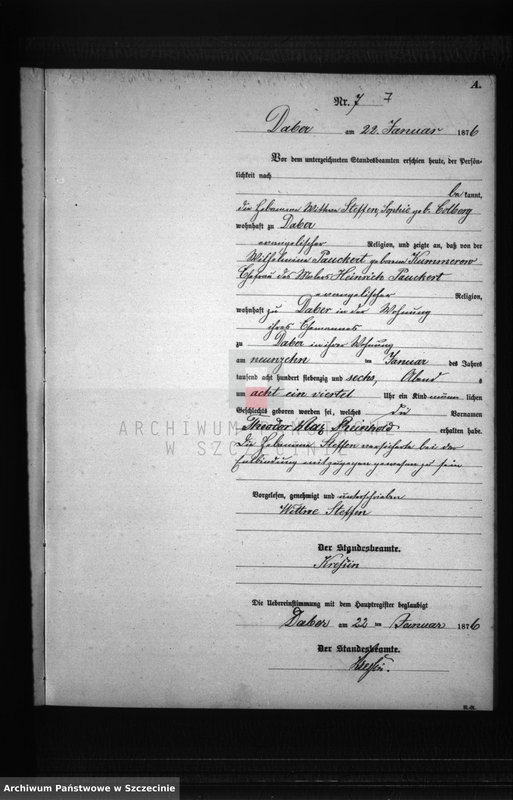 A.
Nr. 7 7
Daber am 22. Januar 1876
Vor dem unterzeichneten Standesbeamten erschien heute, der Persön-
lichkeit nach
be kannt,
die Hebamme Wittwe Steffen, Sophie geb. Colberg
wohnhaft zu Daber
evangelischer Religion, und zeigte an, daß von der
Wilhelmine Pauckert geborene Kummerow
Ehefrau des Heinrich Pauckert
evangelischer Religion,
wohnhaft zu Daber in der Wohnung
ihres Ehemannes
zu Daber in ihrer Wohnung
am neunzehn ten Januar des Jahres
tausend acht hundert siebenzig und sechs, Abend s
um acht ein viertel Uhr ein Kind männ lichen
Geschlechts geboren worden sei, welches die Vornamen
Theodor Max Reinhold erhalten habe.
Die Hebamme Steffen versicherte bei der
Entbindung mit zugegen gewesen zu sein
Vorgelesen, genehmigt und unterschrieben
Wittwe Steffen
Der Standesbeamte.
Die Uebereinstimmung mit dem Hauptregister beglaubigt
Daber am 22 ten Januar 1876
Der Standesbeamte.
ARCHIWUM PAŃSTWOWE
W SZCZECINIE
Archiwum Państwowe w Szczecinie